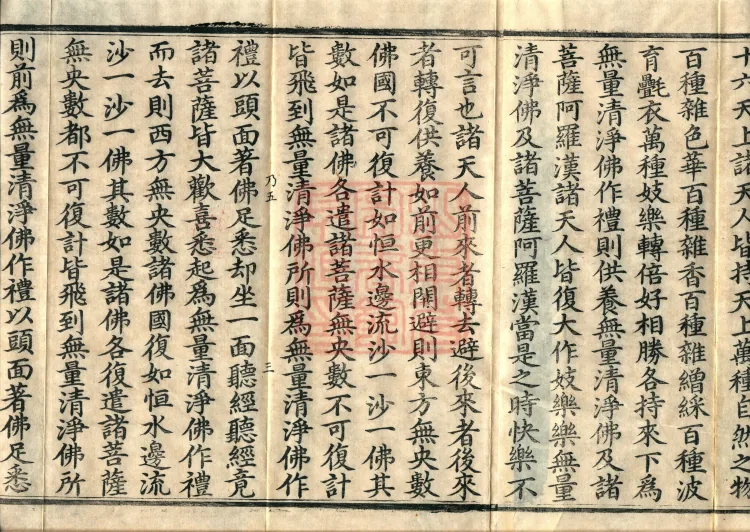 十六天上諸天人皆持天上萬種自然之物
百種雜色華百種雜香百種雜繒綵百種波
育㲲衣萬種妓樂轉倍好相勝各持來下為
無量清淨佛作禮則供養無量清淨佛及諸
菩薩阿羅漢諸天人皆復大作妓樂樂無量
清淨佛及諸菩薩阿羅漢當是之時快樂不
可言也諸天人前來者轉去避後來者後來
者轉復供養如前更相開避則東方無央數
佛國不可復計如恒水邊流沙一沙一佛其
數如是諸佛各遣諸菩薩無央數不可復計
皆飛到無量清淨佛所則為無量清淨佛作
乃五 三
禮以頭面著佛足悉却坐一面聽經聽經竟
諸菩薩皆大歡喜悉起為無量清淨佛作禮
而去則西方無央數諸佛國復如恒水邊流
沙一沙一佛其數如是諸佛各復遣諸菩薩
無央數都不可復計皆飛到無量清淨佛所
則前為無量清淨佛作禮以頭面著佛足悉